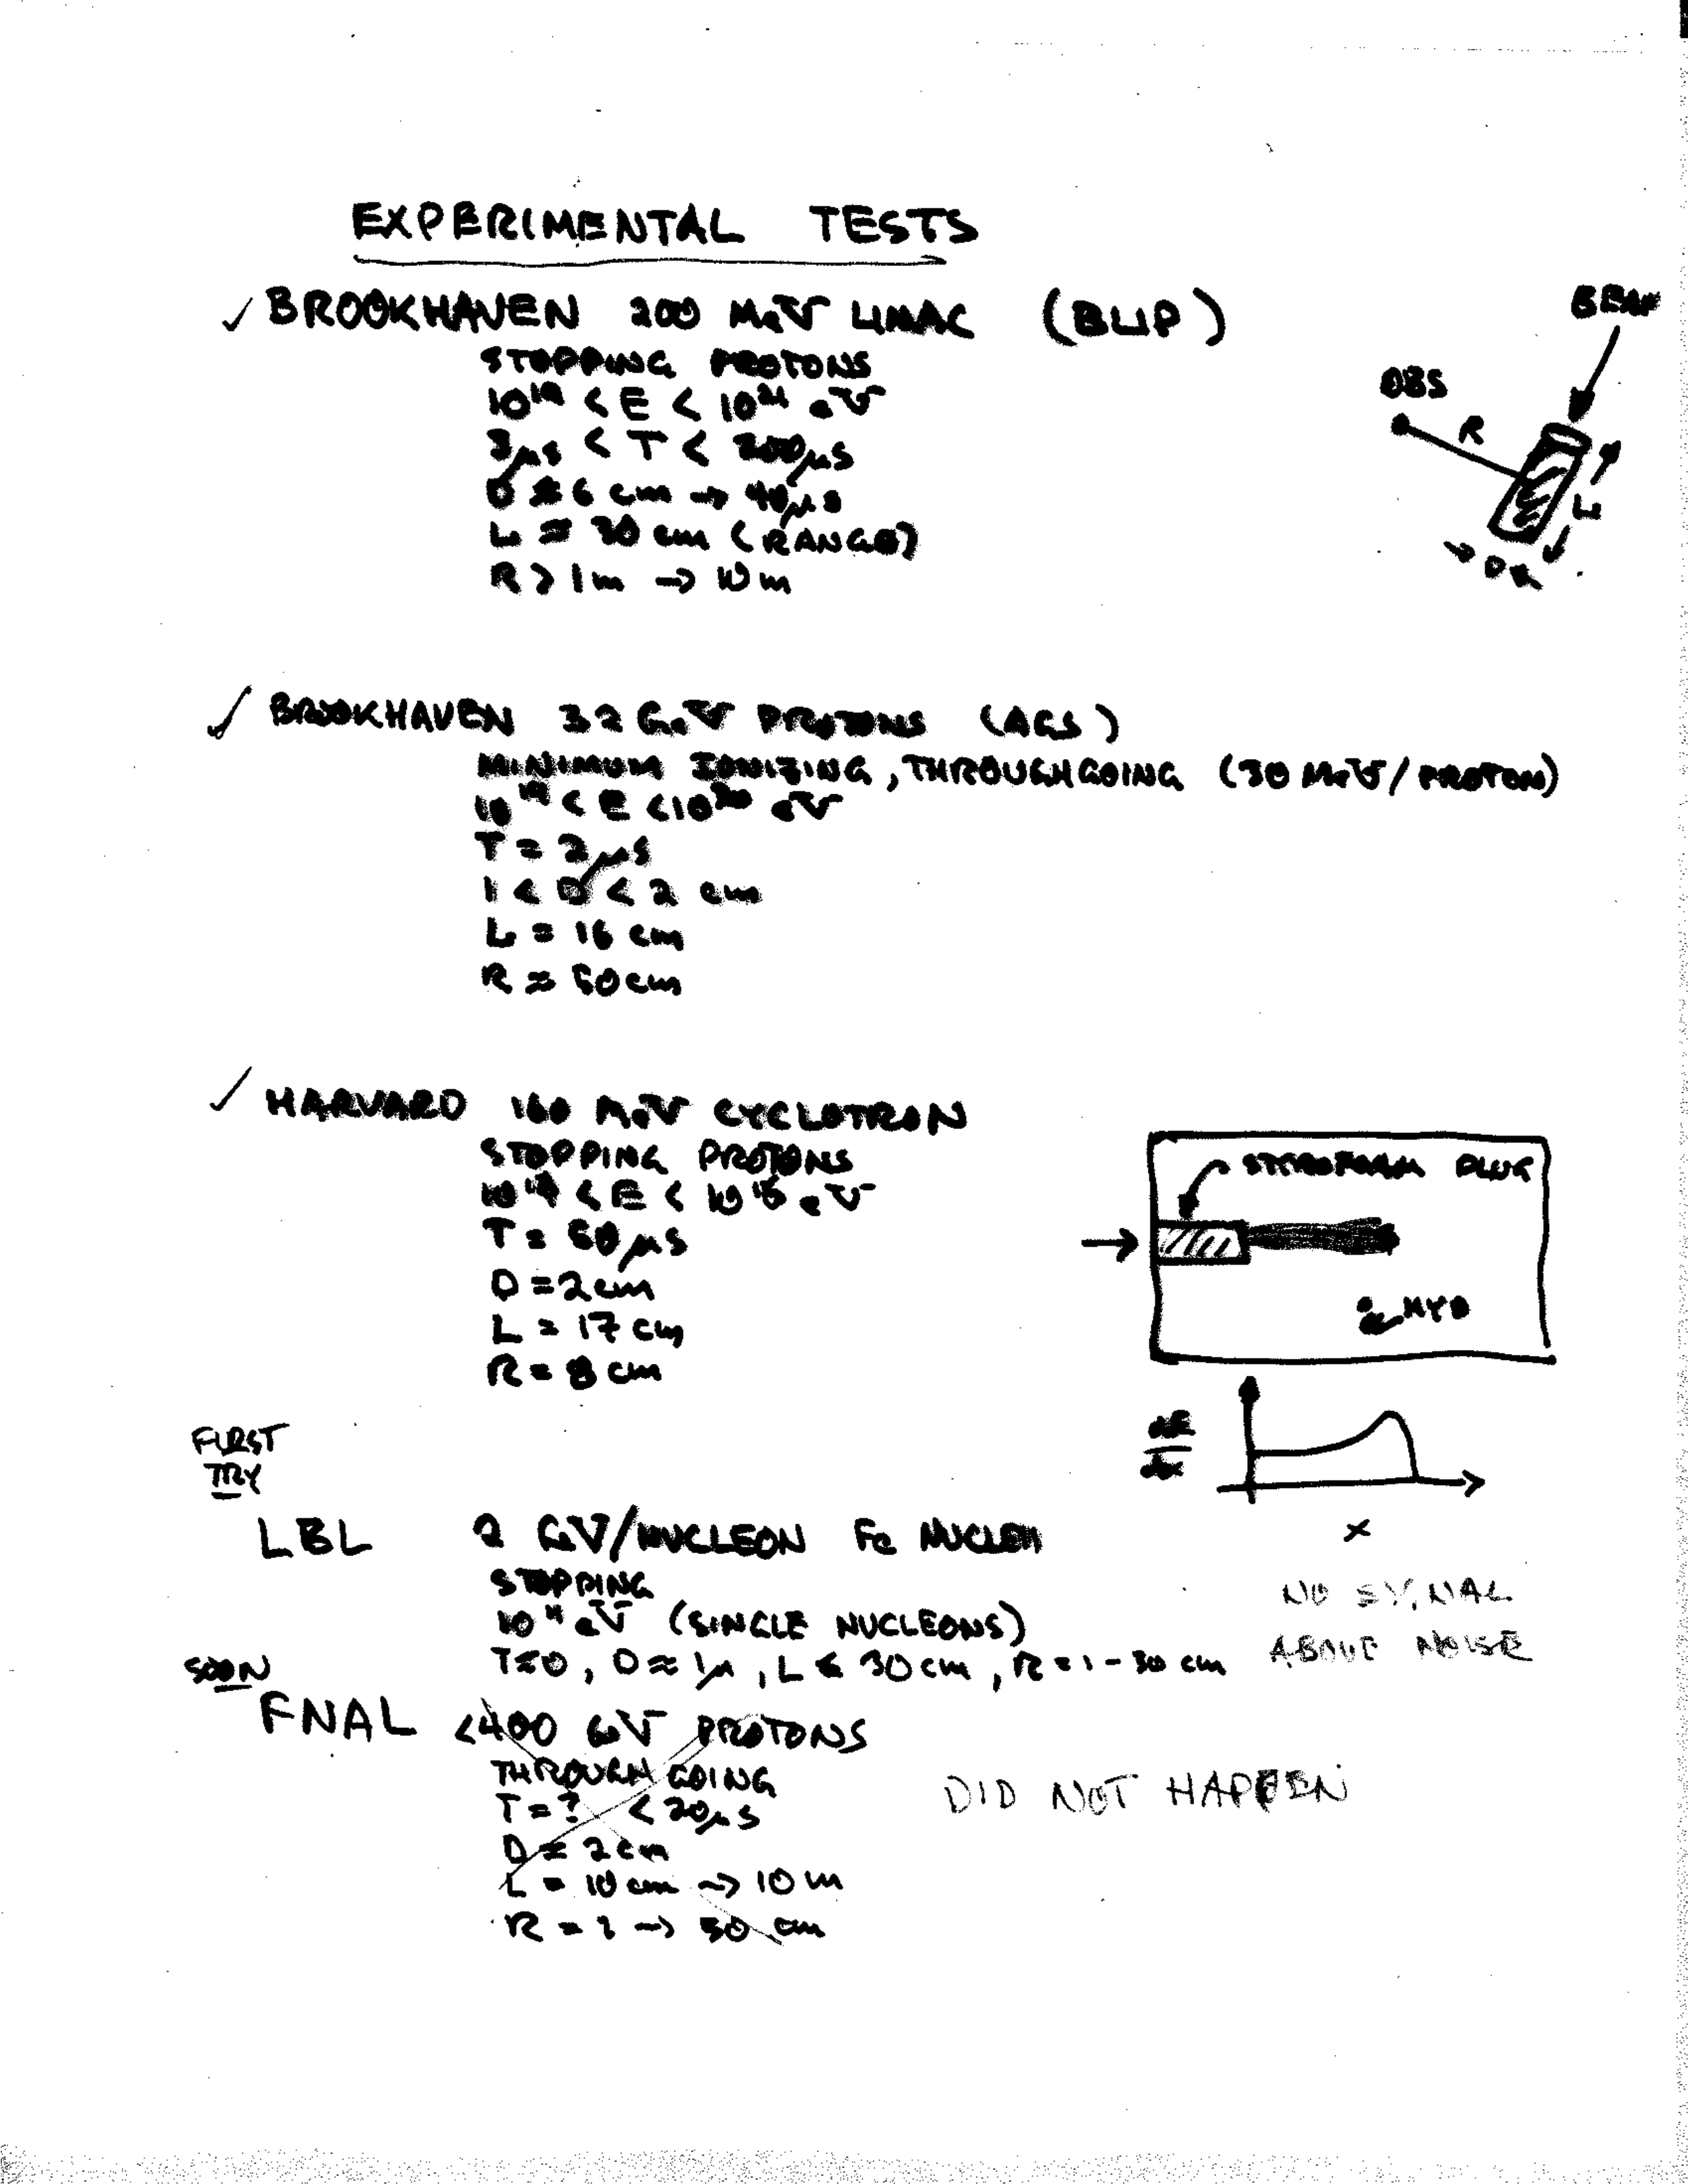 EXPERIMENTAL TESTS
✓ BROOKHAVEN 200 MeV LINAC (BLIP)
STOPPING PROTONS
10¹⁹ < E < 10²¹ eV
3μs < T < 200μs
D ≈ 6 cm → 40μs
L ≈ 30 cm (RANGE)
R > 1m → 10m
BEAM
OBS
R
L
D
✓ BROOKHAVEN 32 GeV PROTONS (AGS)
MINIMUM IONIZING, THROUGHGOING (30 MeV/PROTON)
10¹⁹ < E < 10²⁰ eV
T = 2μs
1 < D < 2 cm
L = 16 cm
R ≈ 50cm
✓ HARVARD 160 MeV CYCLOTRON
STOPPING PROTONS
10 < E < 10¹⁶ eV
T = 50μs
D = 2cm
L = 17 cm
R = 8 cm
STYROFOAM PLUG
HYD
dE
dx
x
FIRST
TRY
LBL 2 GeV/NUCLEON Fe NUCLEI
STOPPING
10¹¹ eV (SINGLE NUCLEONS)
T≈0, D≈1μ, L ≤ 30cm, R = 1-30 cm
NO SIGNAL
ABOVE NOISE
SOON
FNAL <400 GeV PROTONS
THROUGH GOING
T = ? < 20μs
D ≈ 2cm
L = 10 cm → 10 m
R = ? → 50 cm
DID NOT HAPPEN